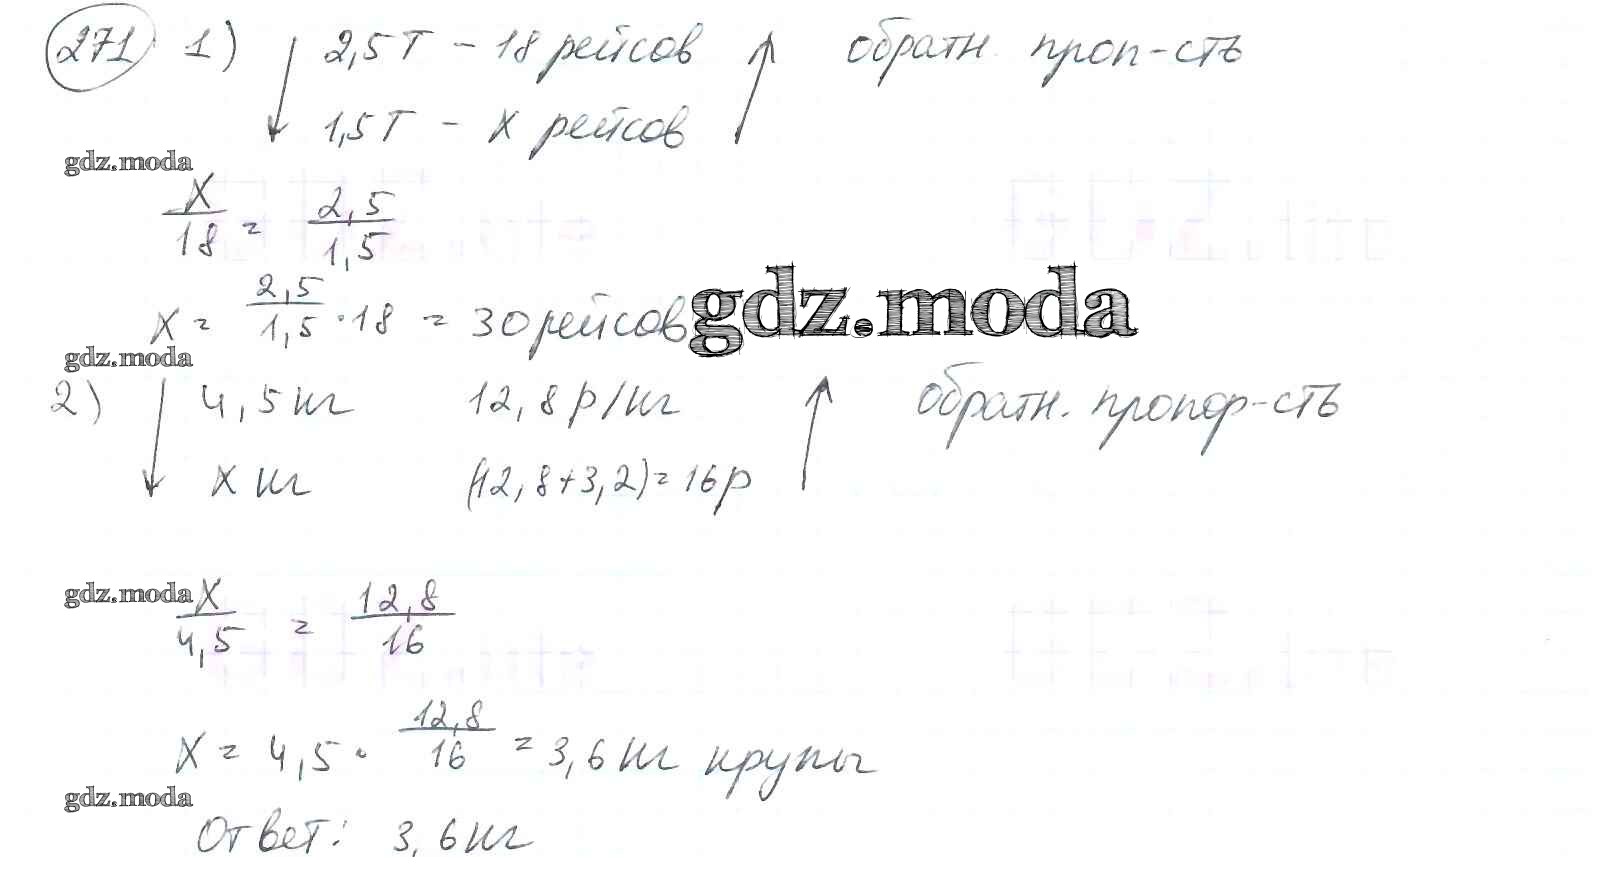 271 1) 2,5т – 18 рейсов обратн. проп-сть
1,5т – х рейсов
gdz.moda
х/18 = 2,5/1,5
х = 2,5/1,5 · 18 = 30 рейсов
gdz.moda
gdz.moda
2) 4,5 кг 12,8 р/кг обратн. пропор-сть
х кг (12,8+3,2)=16р
gdz.moda
х/4,5 = 12,8/16
х = 4,5 · 12,8/16 = 3,6 кг крупы
gdz.moda
Ответ: 3,6 кг